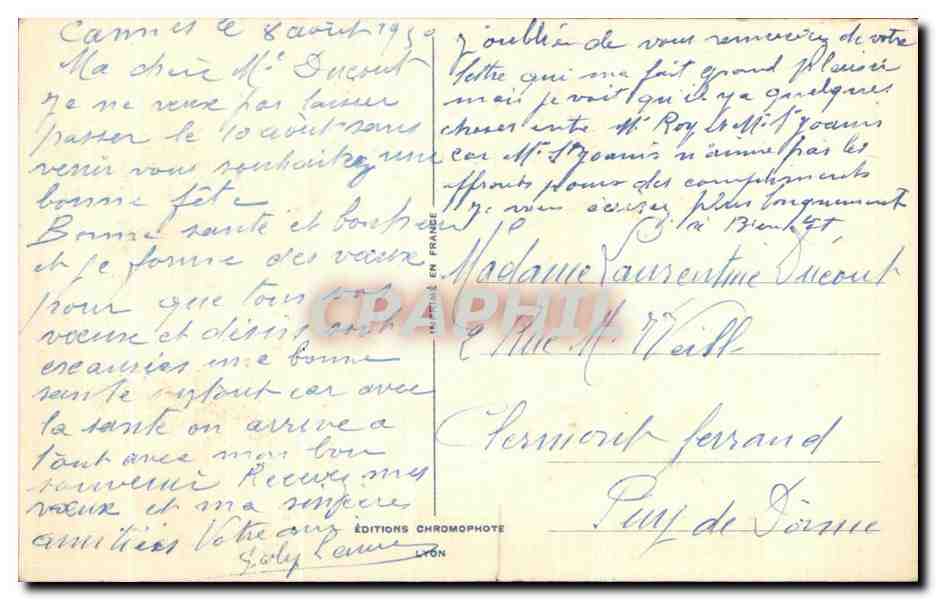 Cannes le 8 août 1950
Ma chère Me Ducout
Je ne veux pas laisser
passer le 10 août sans
venir vous souhaitez une
bonne fête
Bonne santé et bonheur
et je forme des vœux
pour que tous vos
vœux et désirs sont
une bonne
santé surtout car avec
la santé on arrive a
tout avec mon bon
souvenir Recevez mes
vœux et ma sincère
amitiées Votre amie
j'oublié de vous remercier de votre
lettre qui ma fait grand plaisir
mais je voit qu'il y a quelques
choses entre Mr Roy et Mr St Joanis
car Mr St Joanis n'aime pas les
pour des compliments
Je vous plus longuement
à Bientôt
Madame Laurentine Ducout
2 Rue M. Weill
Clermont ferrand
Puy de Dôme
IMPRIMÉ EN FRANCE
CRAPHIL
ÉDITIONS CHROMOPHOTE
LYON